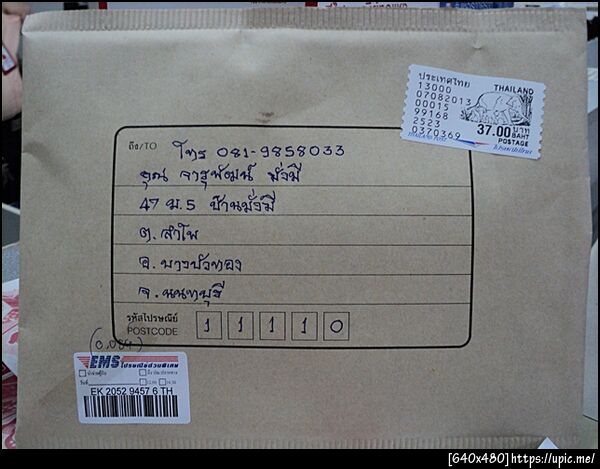 ประเทศไทย
THAILAND
13000
07082013
00015
99168
2523
0370369
37.00 บาท
BAHT
POSTAGE
ถึง/TO
โทร 081-9858033
คุณ จารุพัฒน์ มั่งมี
47 ม.5 บ้านมั่งมี
ต.ลำโพ
อ.บางบัวทอง
จ.นนทบุรี
รหัสไปรษณีย์
POSTCODE
1 1 1 1 0
(0.084)
EMS ไปรษณีย์ด่วนพิเศษ
EK 2052 9457 6 TH
[640x480]https://upic.me/